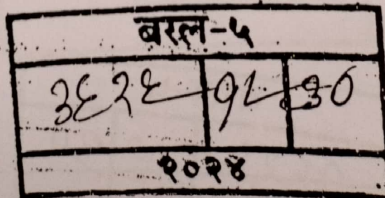 बरल-५
३६२६ १८ ३०
२०२४